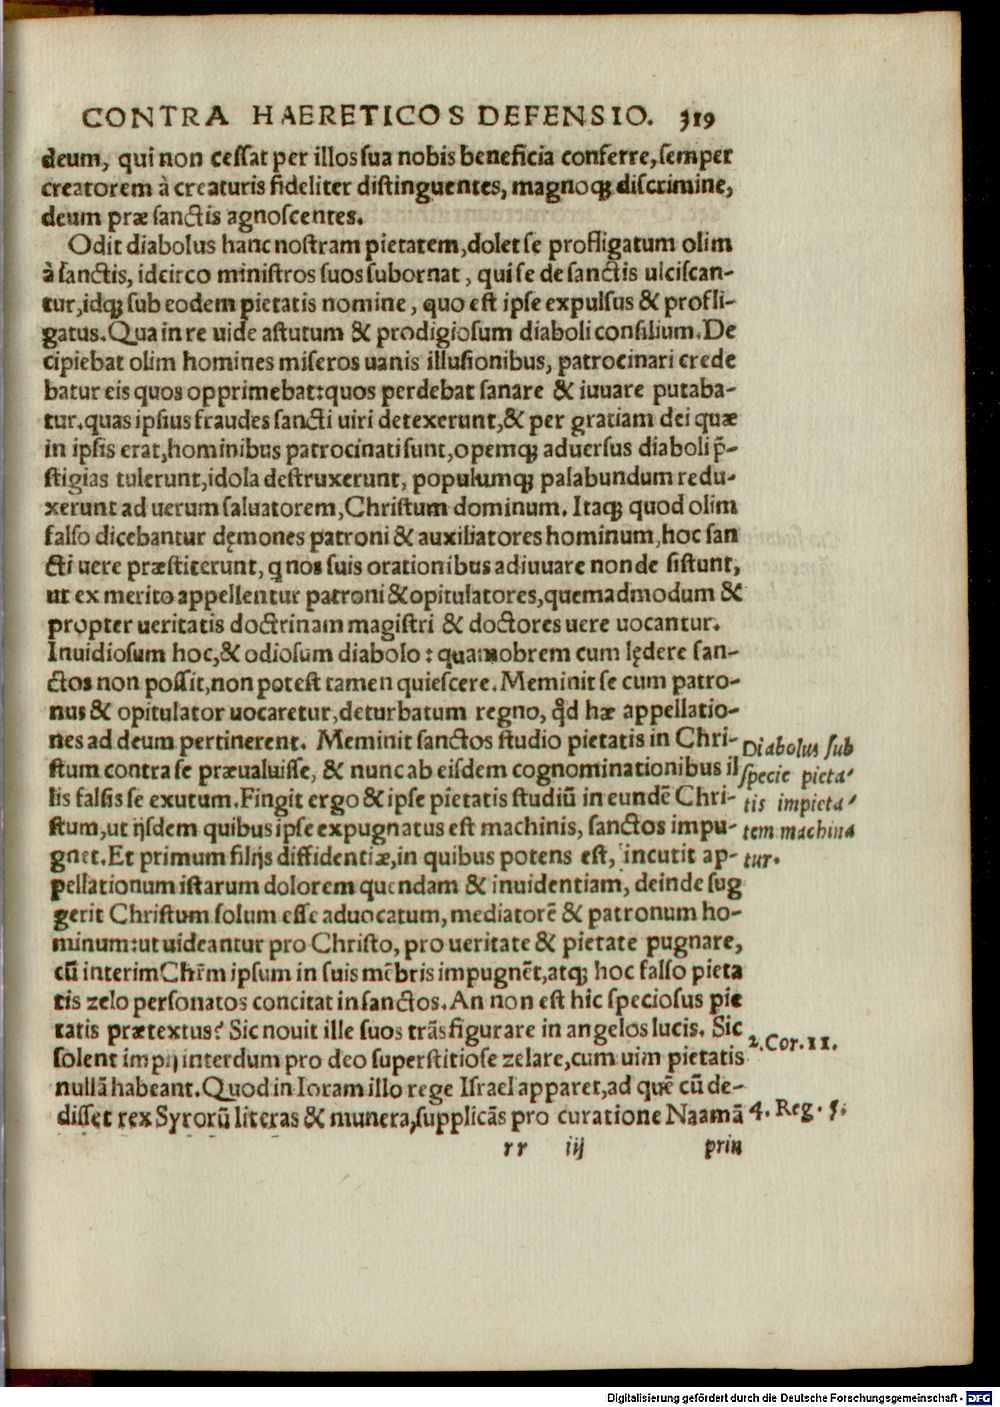 CONTRA HAERETICOS DEFENSIO. 319
deum, qui non cessat per illos sua nobis beneficia conferre, semper
creatorem à creaturis fideliter distinguentes, magnoq; discrimine,
deum præ sanctis agnoscentes.
Odit diabolus hanc nostram pietatem, dolet se profligatum olim
à sanctis, idcirco ministros suos subornat, qui se de sanctis ulciscan-
tur, idq; sub eodem pietatis nomine, quo est ipse expulsus & profli-
gatus. Qua in re uide astutum & prodigiosum diaboli consilium. De
cipiebat olim homines miseros uanis illusionibus, patrocinari crede
batur eis quos opprimebat: quos perdebat sanare & iuuare putaba-
tur. quas ipsius fraudes sancti uiri detexerunt, & per gratiam dei quæ
in ipsis erat, hominibus patrocinati sunt, opemq; aduersus diaboli p̃-
stigias tulerunt, idola destruxerunt, populumq; palabundum redu-
xerunt ad uerum saluatorem, Christum dominum. Itaq; quod olim
falso dicebantur dęmones patroni & auxiliatores hominum, hoc san
cti uere præstiterunt, q nos suis orationibus adiuuare non de sistunt,
ut ex merito appellentur patroni & opitulatores, quemadmodum &
propter ueritatis doctrinam magistri & doctores uere uocantur.
Inuidiosum hoc, & odiosum diabolo: quamobrem cum lędere san-
ctos non possit, non potest tamen quiescere. Meminit se cum patro-
nus & opitulator uocaretur, deturbatum regno, qd hæ appellatio-
nes ad deum pertinerent. Meminit sanctos studio pietatis in Chri-
stum contra se præualuisse, & nunc ab eisdem cognominationibus il
lis falsis se exutum. Fingit ergo & ipse pietatis studiũ in eundẽ Chri-
stum, ut ijsdem quibus ipse expugnatus est machinis, sanctos impu-
gnet. Et primum filijs diffidentiæ, in quibus potens est, incutit ap-
pellationum istarum dolorem quendam & inuidentiam, deinde sug
gerit Christum solum esse aduocatum, mediatorẽ & patronum ho-
minum: ut uideantur pro Christo, pro ueritate & pietate pugnare,
cũ interim Chr̃m ipsum in suis mẽbris impugnẽt, atq; hoc falso pieta
tis zelo personatos concitat in sanctos. An non est hic speciosus pie
tatis prætextus? Sic nouit ille suos trãsfigurare in angelos lucis. Sic
solent impij interdum pro deo superstitiose zelare, cum uim pietatis
nullã habeant. Quod in Ioram illo rege Israel apparet, ad quẽ cũ de-
disset rex Syrorũ literas & munera, supplicãs pro curatione Naamã
rr iij prin
Diabolus sub
specie pieta-
tis impieta-
tem machina
tur.
2. Cor. 11.
4. Reg. 5.
Digitalisierung gefördert durch die Deutsche Forschungsgemeinschaft - DFG